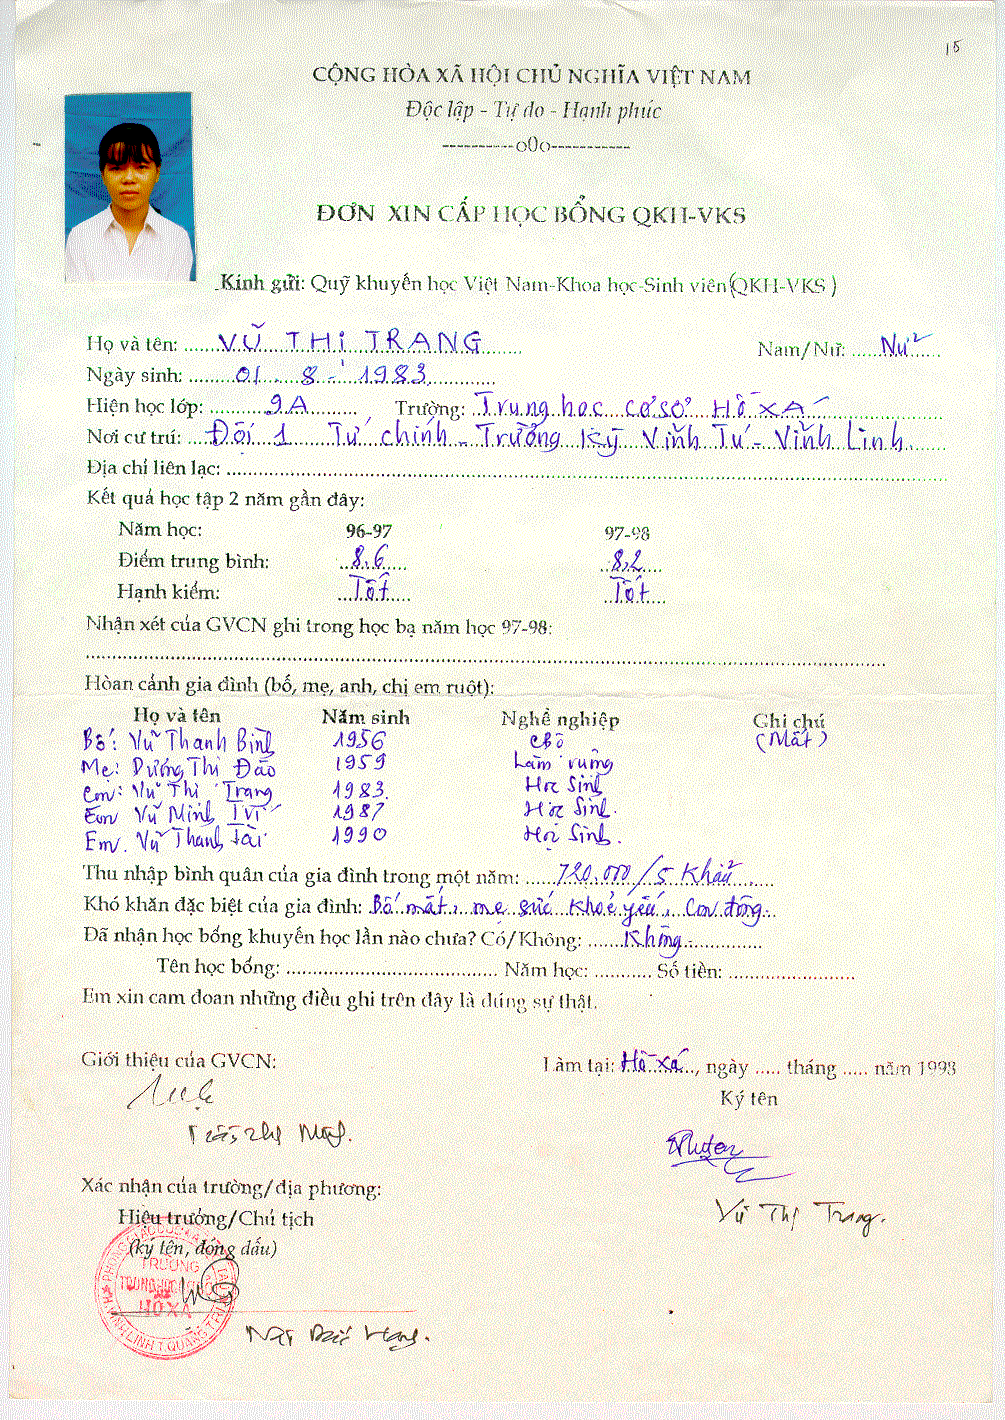 15
CỘNG HÒA XÃ HỘI CHỦ NGHĨA VIỆT NAM
Độc lập - Tự do - Hạnh phúc
----------o0o-----------
ĐƠN XIN CẤP HỌC BỔNG QKH-VKS
Kính gửi: Quỹ khuyến học Việt Nam-Khoa học-Sinh viên(QKH-VKS )
Họ và tên: VŨ THỊ TRANG Nam/Nữ: Nữ
Ngày sinh: 01 - 8 - 1983
Hiện học lớp: 9A Trường: Trung học cơ sở Hồ Xá
Nơi cư trú: Đội 1 Tứ chính - Trường Kỳ Vĩnh Tú - Vĩnh Linh.
Địa chỉ liên lạc:
Kết quả học tập 2 năm gần đây:
Năm học: 96-97 97-98
Điểm trung bình: 8,6 8,2
Hạnh kiểm: Tốt Tốt
Nhận xét của GVCN ghi trong học bạ năm học 97-98:
Hòan cảnh gia đình (bố, mẹ, anh, chị em ruột):
Họ và tên Năm sinh Nghề nghiệp Ghi chú
Bố: Vũ Thanh Bình 1956 (Mất)
Mẹ: Dương Thị Đào 1959 Làm ruộng
Con: Vũ Thị Trang 1983 Học Sinh
Em Vũ Minh Trí 1987 Học Sinh.
Em. Vũ Thanh Tài 1990 Học Sinh.
Thu nhập bình quân của gia đình trong một năm: 720.000/5 khẩu
Khó khăn đặc biệt của gia đình: Bố mất, mẹ sức khoẻ yếu, con đông.
Đã nhận học bổng khuyến học lần nào chưa? Có/Không: Không
Tên học bổng: Năm học: Số tiền:
Em xin cam đoan những điều ghi trên đây là đúng sự thật.
Giới thiệu của GVCN: Làm tại: Hồ Xá, ngày ..... tháng ..... năm 1998
Ký tên
Xác nhận của trường/địa phương:
Vũ Thị Trang.
Hiệu trưởng/Chủ tịch
(ký tên, đóng dấu)
TRƯỜNG
TRUNG HỌC CƠ SỞ
HỒ XÁ
H. VĨNH LINH T. QUẢNG TRỊ